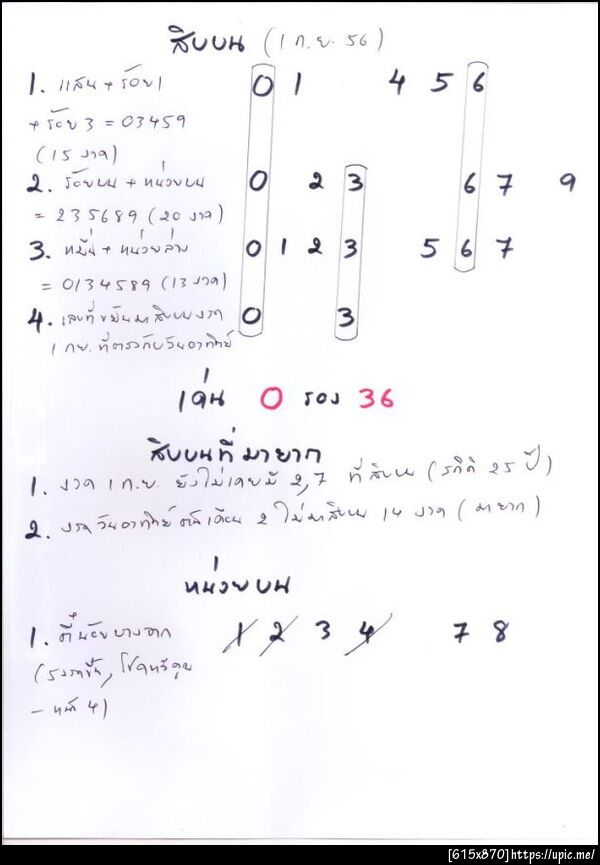 สิบบน (1 ก.ย. 56)
1. แสน + ร้อย1 0 1 4 5 6
+ ร้อย 3 = 03459
(15 งวด)
2. ร้อยบน + หน่วยบน 0 2 3 6 7 9
= 235689 (20 งวด)
3. หมื่น + หน่วยล่าง 0 1 2 3 5 6 7
= 0134589 (13 งวด)
4. เลขที่ขยันมาสิบบนงวด 0 3
1 กย. ที่ตรงกับวันอาทิตย์
เด่น 0 รอง 36
สิบบนที่มายาก
1. งวด 1 ก.ย. ยังไม่เคยมี 2,7 ที่สิบบน (สถิติ 25 ปี)
2. งวดวันอาทิตย์ต้นเดือน 2 ไม่มาสิบบน 14 งวด (มายาก)
หน่วยบน
1. ตี๋น้อยบางจาก 1 2 3 4 7 8
(5 งวดขึ้น, โชคทวีคูณ
- หน้า 4)
[615x870]https://upic.me/